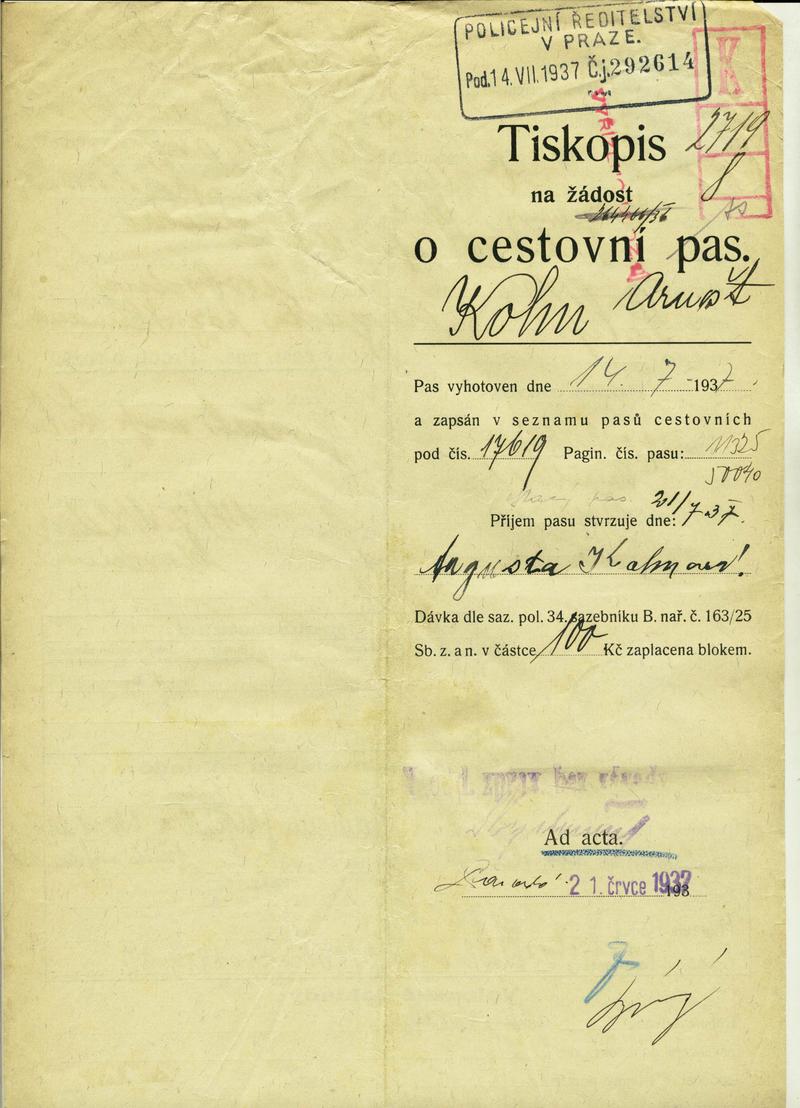 POLICEJNÍ ŘEDITELSTVÍ
V PRAZE.
Pod. 14.VII.1937 Č.j. 292614
K
Tiskopis
2719
8
na žádost
o cestovní pas.
Kohn Arnošt
Pas vyhotoven dne 14. 7 -1937.
a zapsán v seznamu pasů cestovních
pod čís. 17619 Pagin. čís. pasu: 11325
50040
pas. 21/
Příjem pasu stvrzuje dne: 7 37.
Augusta Kohnová
Dávka dle saz. pol. 34. sazebníku B. nař. č. 163/25
Sb. z. a n. v částce 100 Kč zaplacena blokem.
Ad acta.
21. črvce 1937
193